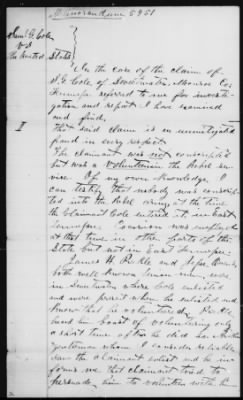 Memorandum 5951
Saml G. Cole
vs
The United States
In the case of the claim of
S. G. Cole, of Sweetwater, Monroe Co.
Tennessee referred to me for investi-
gation and report I have examined
and find,
I
That said claim is an unmitigated
fraud in every respect.
The claimant was not conscripted
but was a Volunteer in the Rebel ser-
vice. Of my own knowledge I
can testify that nobody was conscrip-
ted into the Rebel army at the time
the Claimant Cole entered it, in East
Tennessee. Coercion was
at that time in other parts of the
State but not in East Tennessee.
James H. Pickle and
both well known Union men, were
in Sweetwater where Cole enlisted
and were present when he enlisted and
know that he volunteered. Pickle
heard him boast of volunteering only
a short time after he did so. Another
gentleman whom I consider reliable
saw the claimant enlist and he in-
forms me that claimant tried to
persuade him to volunteer with him